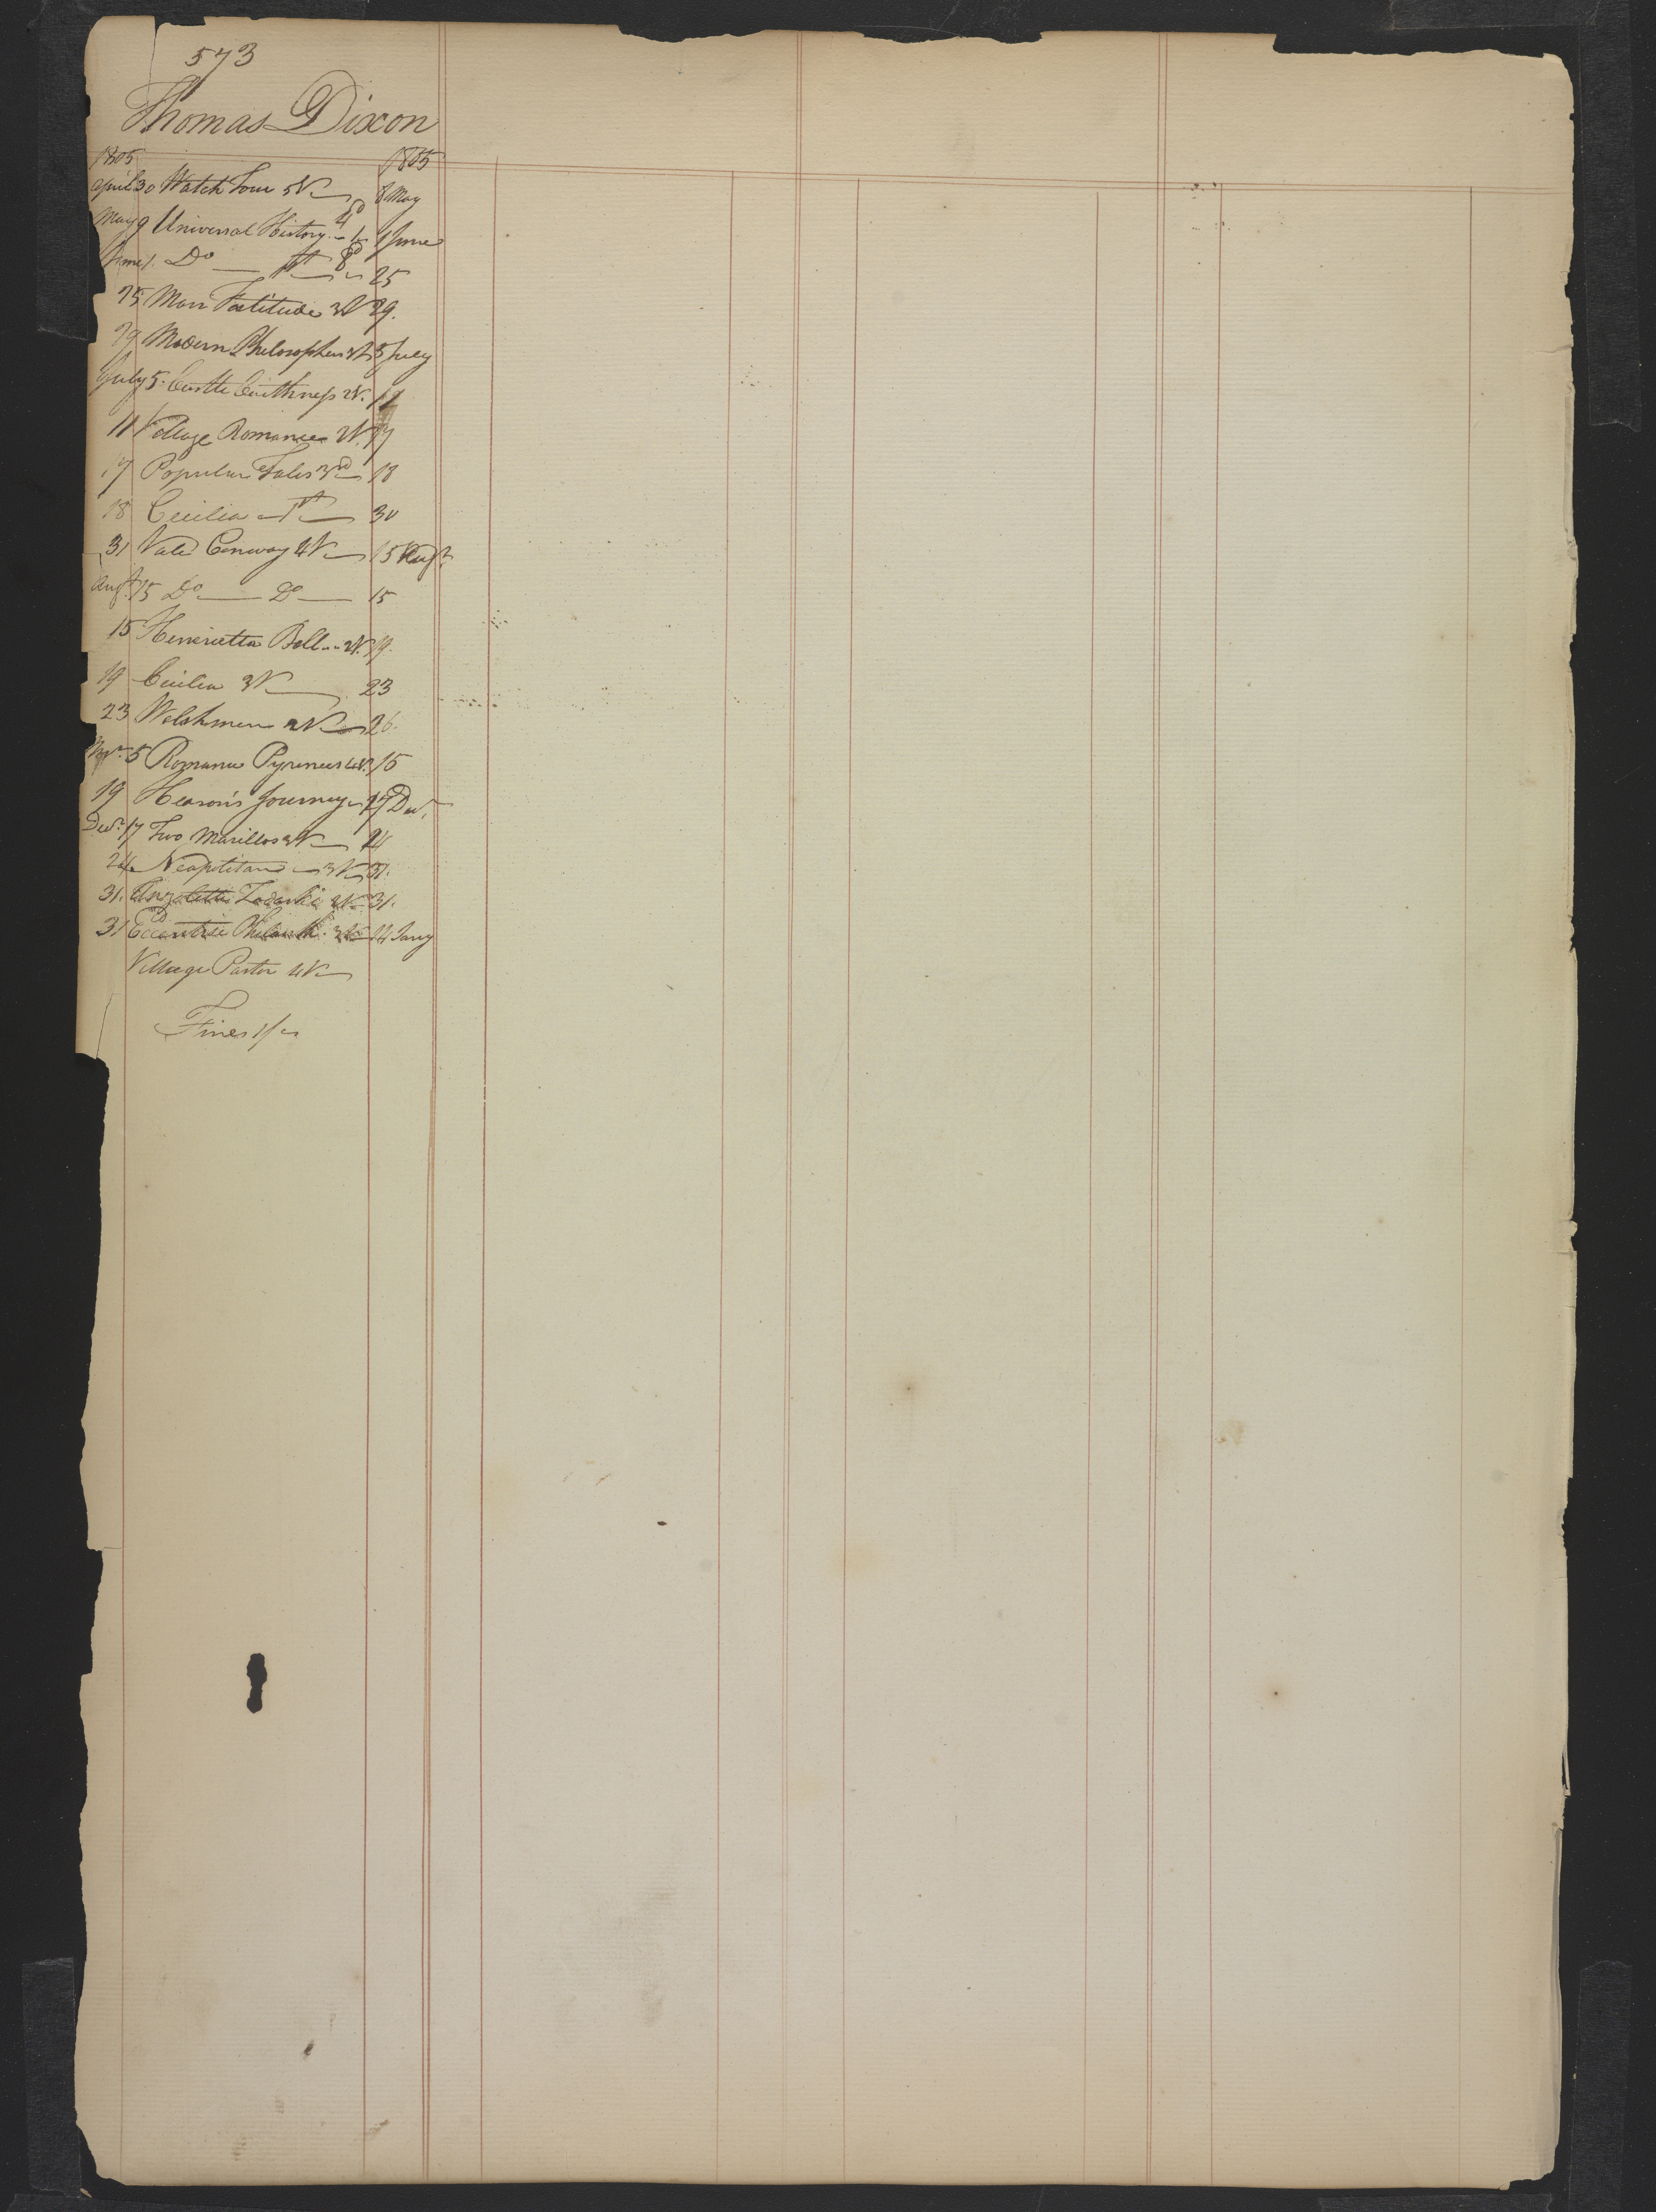 573
Thomas Dixon
1805 1805
April 30 Watch Tour 5V 8 May
May 9 Universal History 4 1 June
June 1. Do 8 25
25 Man Fortitude 3V 29.
29 Modern Philosophers 3V 5 July
July 5. Castle Caithness 2V. 11
11 Village Romance 2V. 17
17 Popular Tales 3rd 18
18 Cecilia 1st 30
31 Vale Conway 4V 15 Augt.
Augt. 15 Do Do 15
15 Henrietta Bell 2V. 19.
19 Cecilia 3V 23
23 Welshmen 2V 26.
5 Romance Pyrenees 4V. 15
19 Hearon's Journey 17 Decr.
Decr. 17 Two Marillos 3V 24
24 Neapolitan 3V 31.
31. 2V 31.
31 Eccentric Philanth. 3V 14 Jany
Village Pastor 4V
Fines 1/